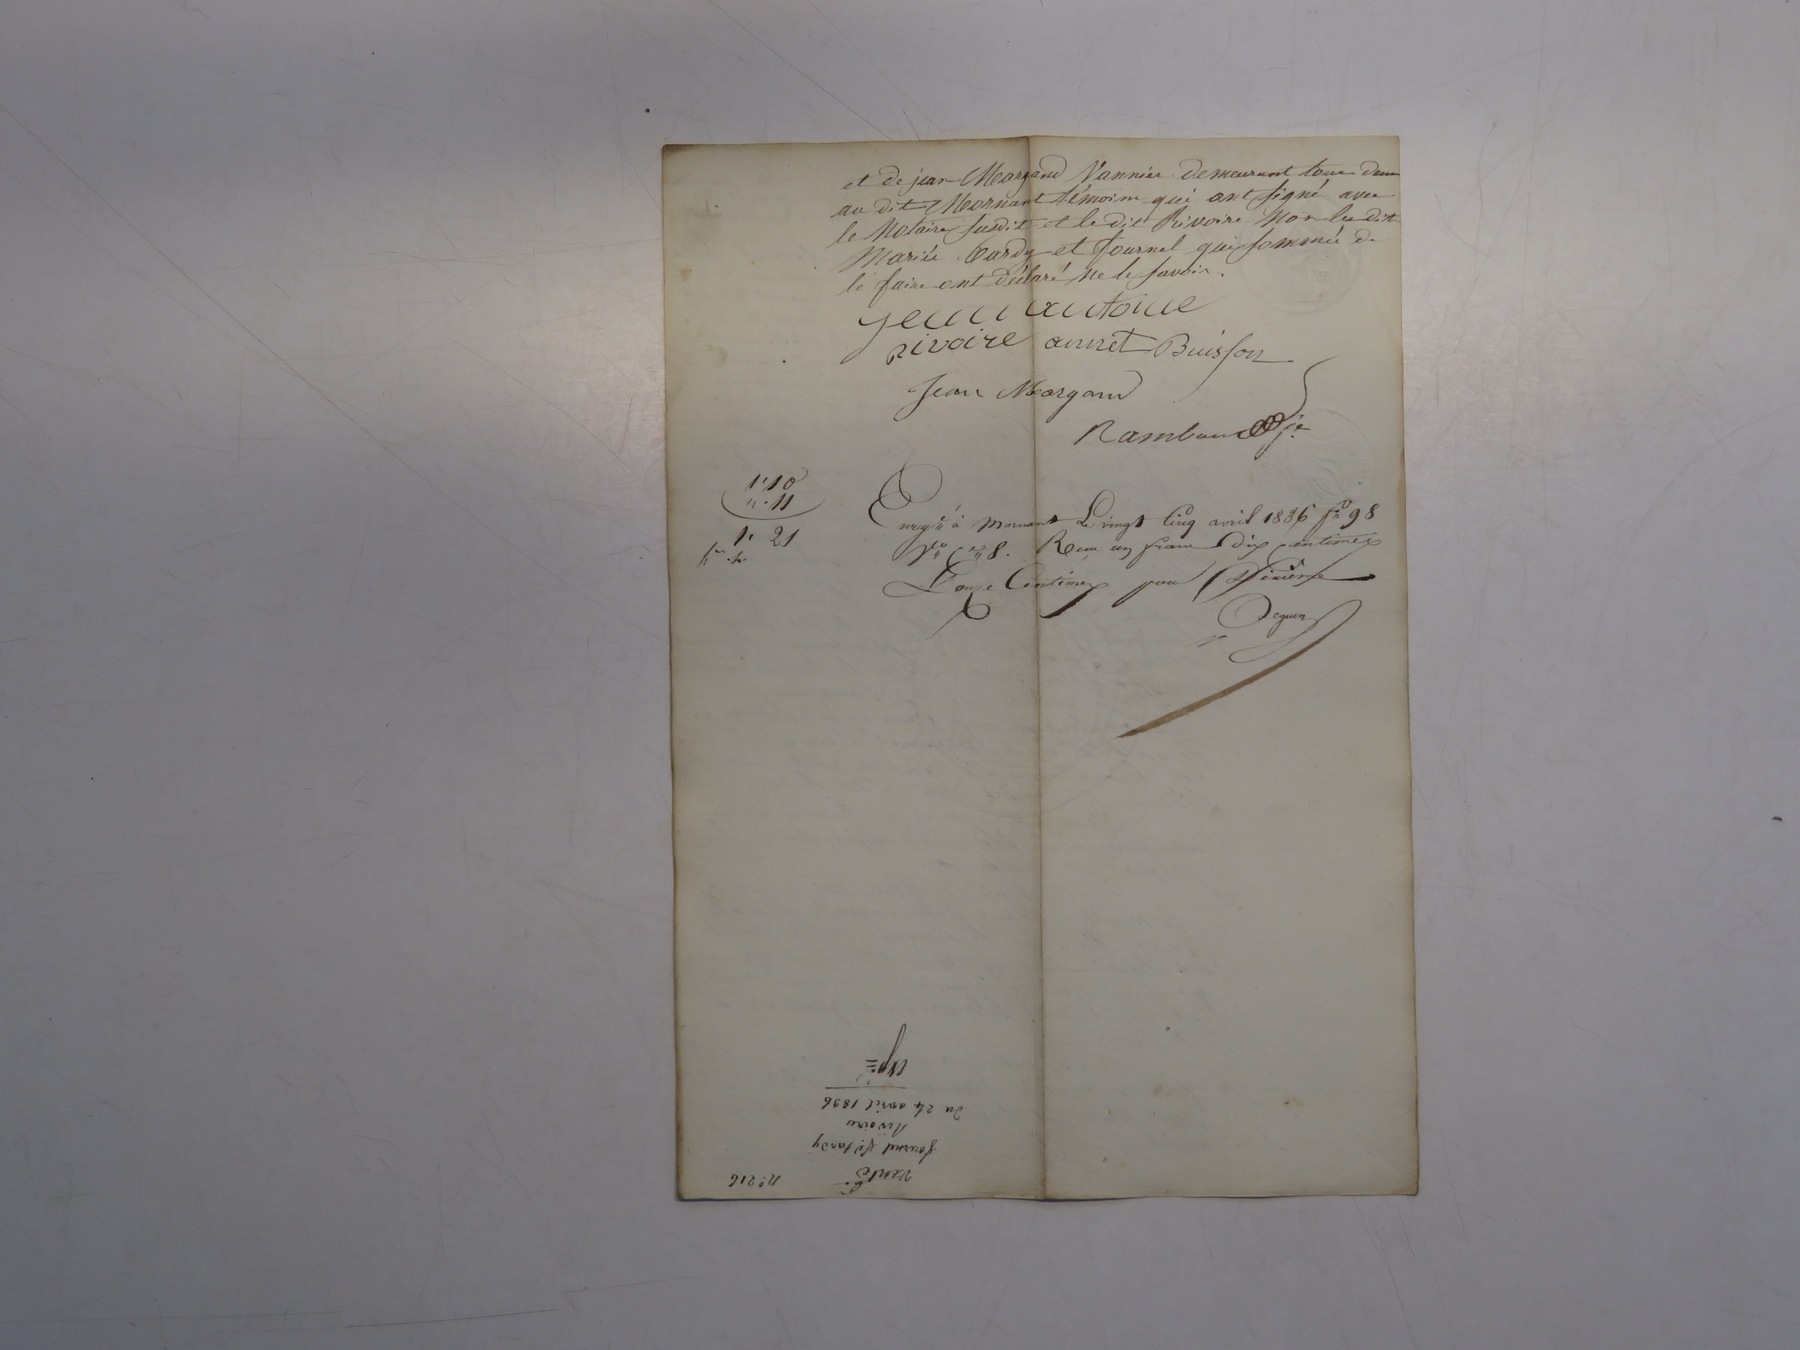 et de jean Margand Vannier demeurant tous deux
au dit Mornant témoins qui ont signé avec
le Notaire susdit et le dit Rivoire Non les dits
Mariés Tardy et fournel qui sommés de
le faire ont déclaré ne le savoir.
jean antoine
rivoire annet Buisson
Jean Margand
Rambaud
1. 10
" . 11
1. 21
Enrgé à Mornant Le vingt cinq avril 1836 fo 98
Vo Ce 8. Reçu un franc dix centimes
Onze Centimes pour Dixième
Deguen
no 216
vente
fournel & tardy
Rivoire
du 24 avril 1836